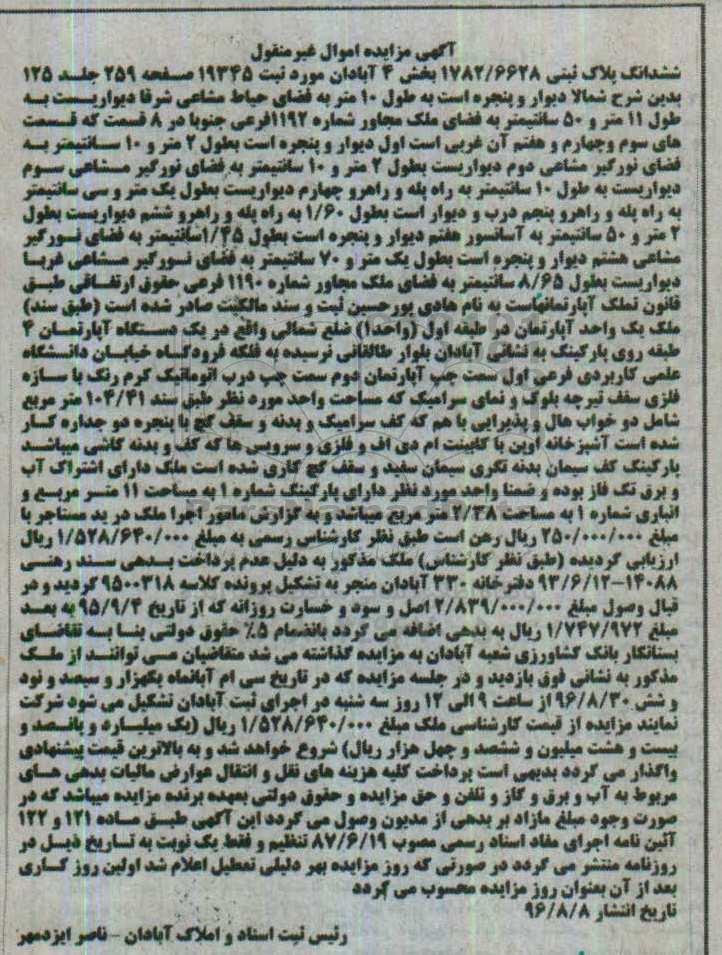 آگهی مزایده اموال غیرمنقول
ششدانگ پلاک ثبتی ۱۷۸۲/۶۶۲۸ بخش ۴ آبادان مورد ثبت ۱۹۳۴۵ صفحه ۲۵۹ جلد ۱۲۵
بدین شرح شمالا دیوار و پنجره است به طول ۱۰ متر به فضای حیاط مشاعی شرقا دیواریست به
طول ۱۱ متر و ۵۰ سانتیمتر به فضای ملک مجاور شماره ۱۱۹۲فرعی جنوبا در ۸ قسمت که قسمت
های سوم وچهارم و هفتم آن غربی است اول دیوار و پنجره است بطول ۲ متر و ۱۰ سانتیمتر به
فضای نورگیر مشاعی دوم دیواریست بطول ۲ متر و ۱۰ سانتیمتر به فضای نورگیر مشاعی سوم
دیواریست به طول ۱۰ سانتیمتر به راه پله و راهرو چهارم دیواریست بطول یک متر و سی سانتیمتر
به راه پله و راهرو پنجم درب و دیوار است بطول ۱/۶۰ به راه پله و راهرو ششم دیواریست بطول
۲ متر و ۵۰ سانتیمتر به آسانسور هفتم دیوار و پنجره است بطول ۱/۴۵سانتیمتر به فضای نورگیر
مشاعی هشتم دیوار و پنجره است بطول یک متر و ۷۰ سانتیمتر به فضای نورگیر مشاعی غربا
دیواریست بطول ۸/۶۵ سانتیمتر به فضای ملک مجاور شماره ۱۱۹۰ فرعی حقوق ارتفاقی طبق
قانون تملک آپارتمانهاست به نام هادی پورحسین ثبت و سند مالکیت صادر شده است (طبق سند)
ملک یک واحد آپارتمان در طبقه اول (واحد۱) ضلع شمالی واقع در یک دستگاه آپارتمان ۴
طبقه روی پارکینگ به نشانی آبادان بلوار طالقانی نرسیده به فلکه فرودگاه خیابان دانشگاه
علمی کاربردی فرعی اول سمت چپ آپارتمان دوم سمت چپ درب اتوماتیک کرم رنگ با سازه
فلزی سقف تیرچه بلوک و نمای سرامیک که مساحت واحد مورد نظر طبق سند ۱۰۴/۴۱ متر مربع
شامل دو خواب هال و پذیرایی با هم که کف سرامیک و بدنه و سقف گچ با پنجره دو جداره کار
شده است آشپزخانه اوپن با کابینت ام دی اف و فلزی و سرویس ها که کف و بدنه کاشی میباشد
پارکینگ کف سیمان بدنه تگری سیمان سفید و سقف گچ کاری شده است ملک دارای اشتراک آب
و برق تک فاز بوده و ضمنا واحد مورد نظر دارای پارکینگ شماره ۱ به مساحت ۱۱ متر مربع و
انباری شماره ۱ به مساحت ۲/۳۸ متر مربع میباشد و به گزارش مامور اجرا ملک در ید مستاجر با
مبلغ ۲۵۰/۰۰۰/۰۰۰ ریال رهن است طبق نظر کارشناس رسمی به مبلغ ۱/۵۲۸/۶۴۰/۰۰۰ ریال
ارزیابی گردیده (طبق نظر کارشناس) ملک مذکور به دلیل عدم پرداخت بدهی سند رهنی
۱۴۰۸۸-۹۳/۶/۱۲ دفترخانه ۳۳۰ آبادان منجر به تشکیل پرونده کلاسه ۹۵۰۰۳۱۸ گردید و در
قبال وصول مبلغ ۲/۸۳۹/۰۰۰/۰۰۰ اصل و سود و خسارت روزانه که از تاریخ ۹۵/۹/۴ به بعد
مبلغ ۱/۷۴۷/۹۷۲ ریال به بدهی اضافه می گردد بانضمام ۵٪ حقوق دولتی بنا به تقاضای
بستانکار بانک کشاورزی شعبه آبادان به مزایده گذاشته می شد متقاضیان می توانند از ملک
مذکور به نشانی فوق بازدید و در جلسه مزایده که در تاریخ سی ام آبانماه یکهزار و سیصد و نود
و شش ۹۶/۸/۳۰ از ساعت ۹ الی ۱۲ روز سه شنبه در اجرای ثبت آبادان تشکیل می شود شرکت
نمایند مزایده از قیمت کارشناسی ملک مبلغ ۱/۵۲۸/۶۴۰/۰۰۰ ریال (یک میلیارد و پانصد و
بیست و هشت میلیون و ششصد و چهل هزار ریال) شروع خواهد شد و به بالاترین قیمت پیشنهادی
واگذار می گردد بدیهی است پرداخت کلیه هزینه های نقل و انتقال عوارض مالیات بدهی های
مربوط به آب و برق و گاز و تلفن و حق مزایده و حقوق دولتی بعهده برنده مزایده میباشد که در
صورت وجود مبلغ مازاد بر بدهی از مدیون وصول می گردد این آگهی طبق ماده ۱۲۱ و ۱۲۲
آئین نامه اجرای مفاد اسناد رسمی مصوب ۸۷/۶/۱۹ تنظیم و فقط یک نوبت به تاریخ ذیل در
روزنامه منتشر می گردد در صورتی که روز مزایده بهر دلیلی تعطیل اعلام شد اولین روز کاری
بعد از آن بعنوان روز مزایده محسوب می گردد
تاریخ انتشار ۹۶/۸/۸
رئیس ثبت اسناد و املاک آبادان - ناصر ایزدمهر